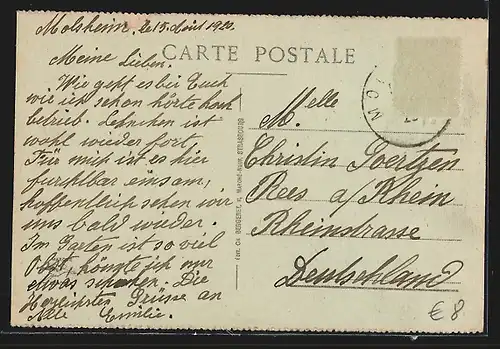 Molsheim, le 15 Août 1920.
CARTE POSTALE
Meine Lieben.
Wie geht es bei Euch
wie ich schon hörte hoch
betrieb. Lehnchen ist
wohl wieder fort,
Für mich ist es hier
furchtbar einsam,
hoffentlich sehen wir
uns bald wieder.
Im Garten ist so viel
Obst, könnte ich nur
etwas schicken. Die
Herzlichsten Grüsse an
Alle Emilie.
MO
Melle
Christin Goertzen
Rees a/Rhein
Rheinstrasse
Deutschland
€ 8